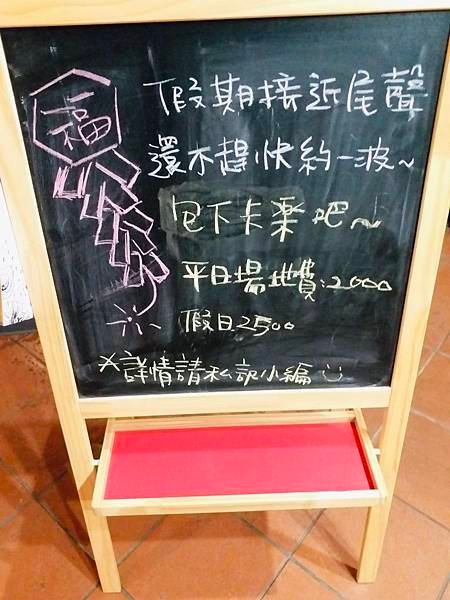 福
假期接近尾聲
還不趕快約一波~
包下卡樂吧~
平日場地費:2000
假日2500
*詳情請私訊小編